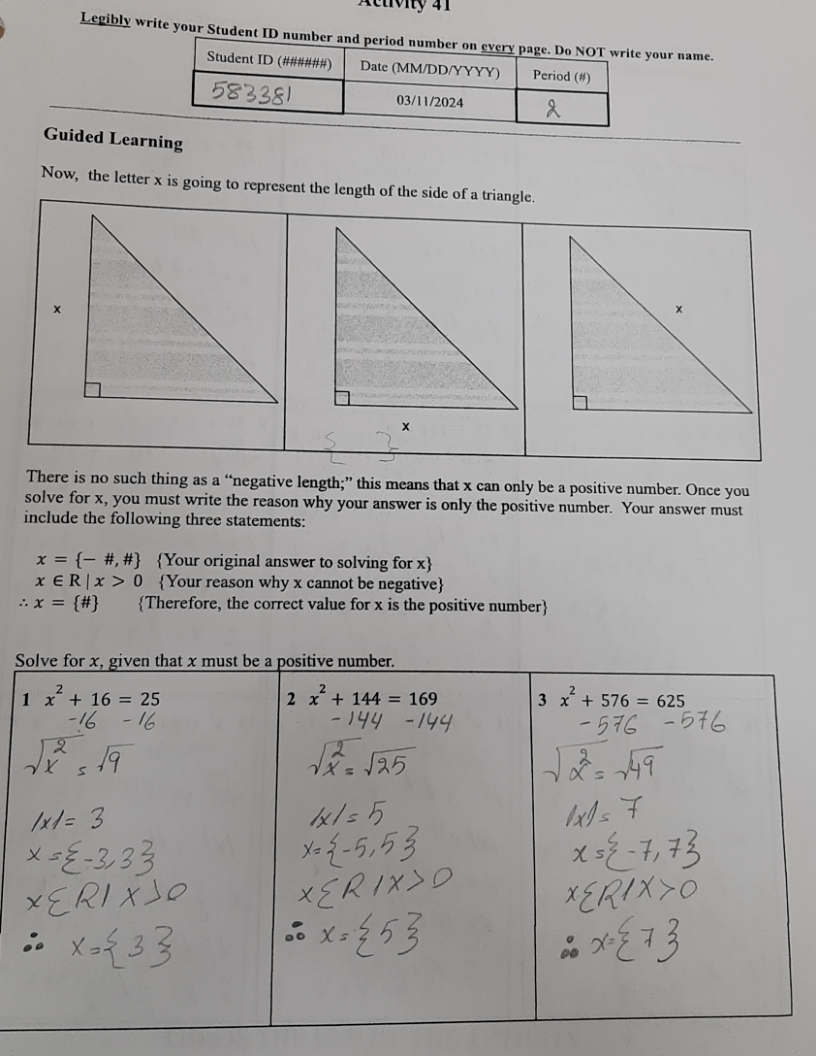 Activity 41
Legibly write your Student ID number and period number on every page. Do NOT write your name.
Student ID (######) Date (MM/DD/YYYY) Period (#)
583381 03/11/2024 2
Guided Learning
Now, the letter x is going to represent the length of the side of a triangle.
x x
x
{ }
There is no such thing as a “negative length;” this means that x can only be a positive number. Once you
solve for x, you must write the reason why your answer is only the positive number. Your answer must
include the following three statements:
x = {− #, #} {Your original answer to solving for x}
x ∈ R | x > 0 {Your reason why x cannot be negative}
∴ x = {#} {Therefore, the correct value for x is the positive number}
Solve for x, given that x must be a positive number.
1 x² + 16 = 25
-16 -16
√x² = √9
|x| = 3
x = {-3,3}
x ∈ R | x > 0
∴ x = {3}
2 x² + 144 = 169
-144 -144
√x² = √25
|x| = 5
x = {-5,5}
x ∈ R | x > 0
∴ x = {5}
3 x² + 576 = 625
-576 -576
√x² = √49
|x| = 7
x = {-7,7}
x ∈ R | x > 0
∴ x = {7}